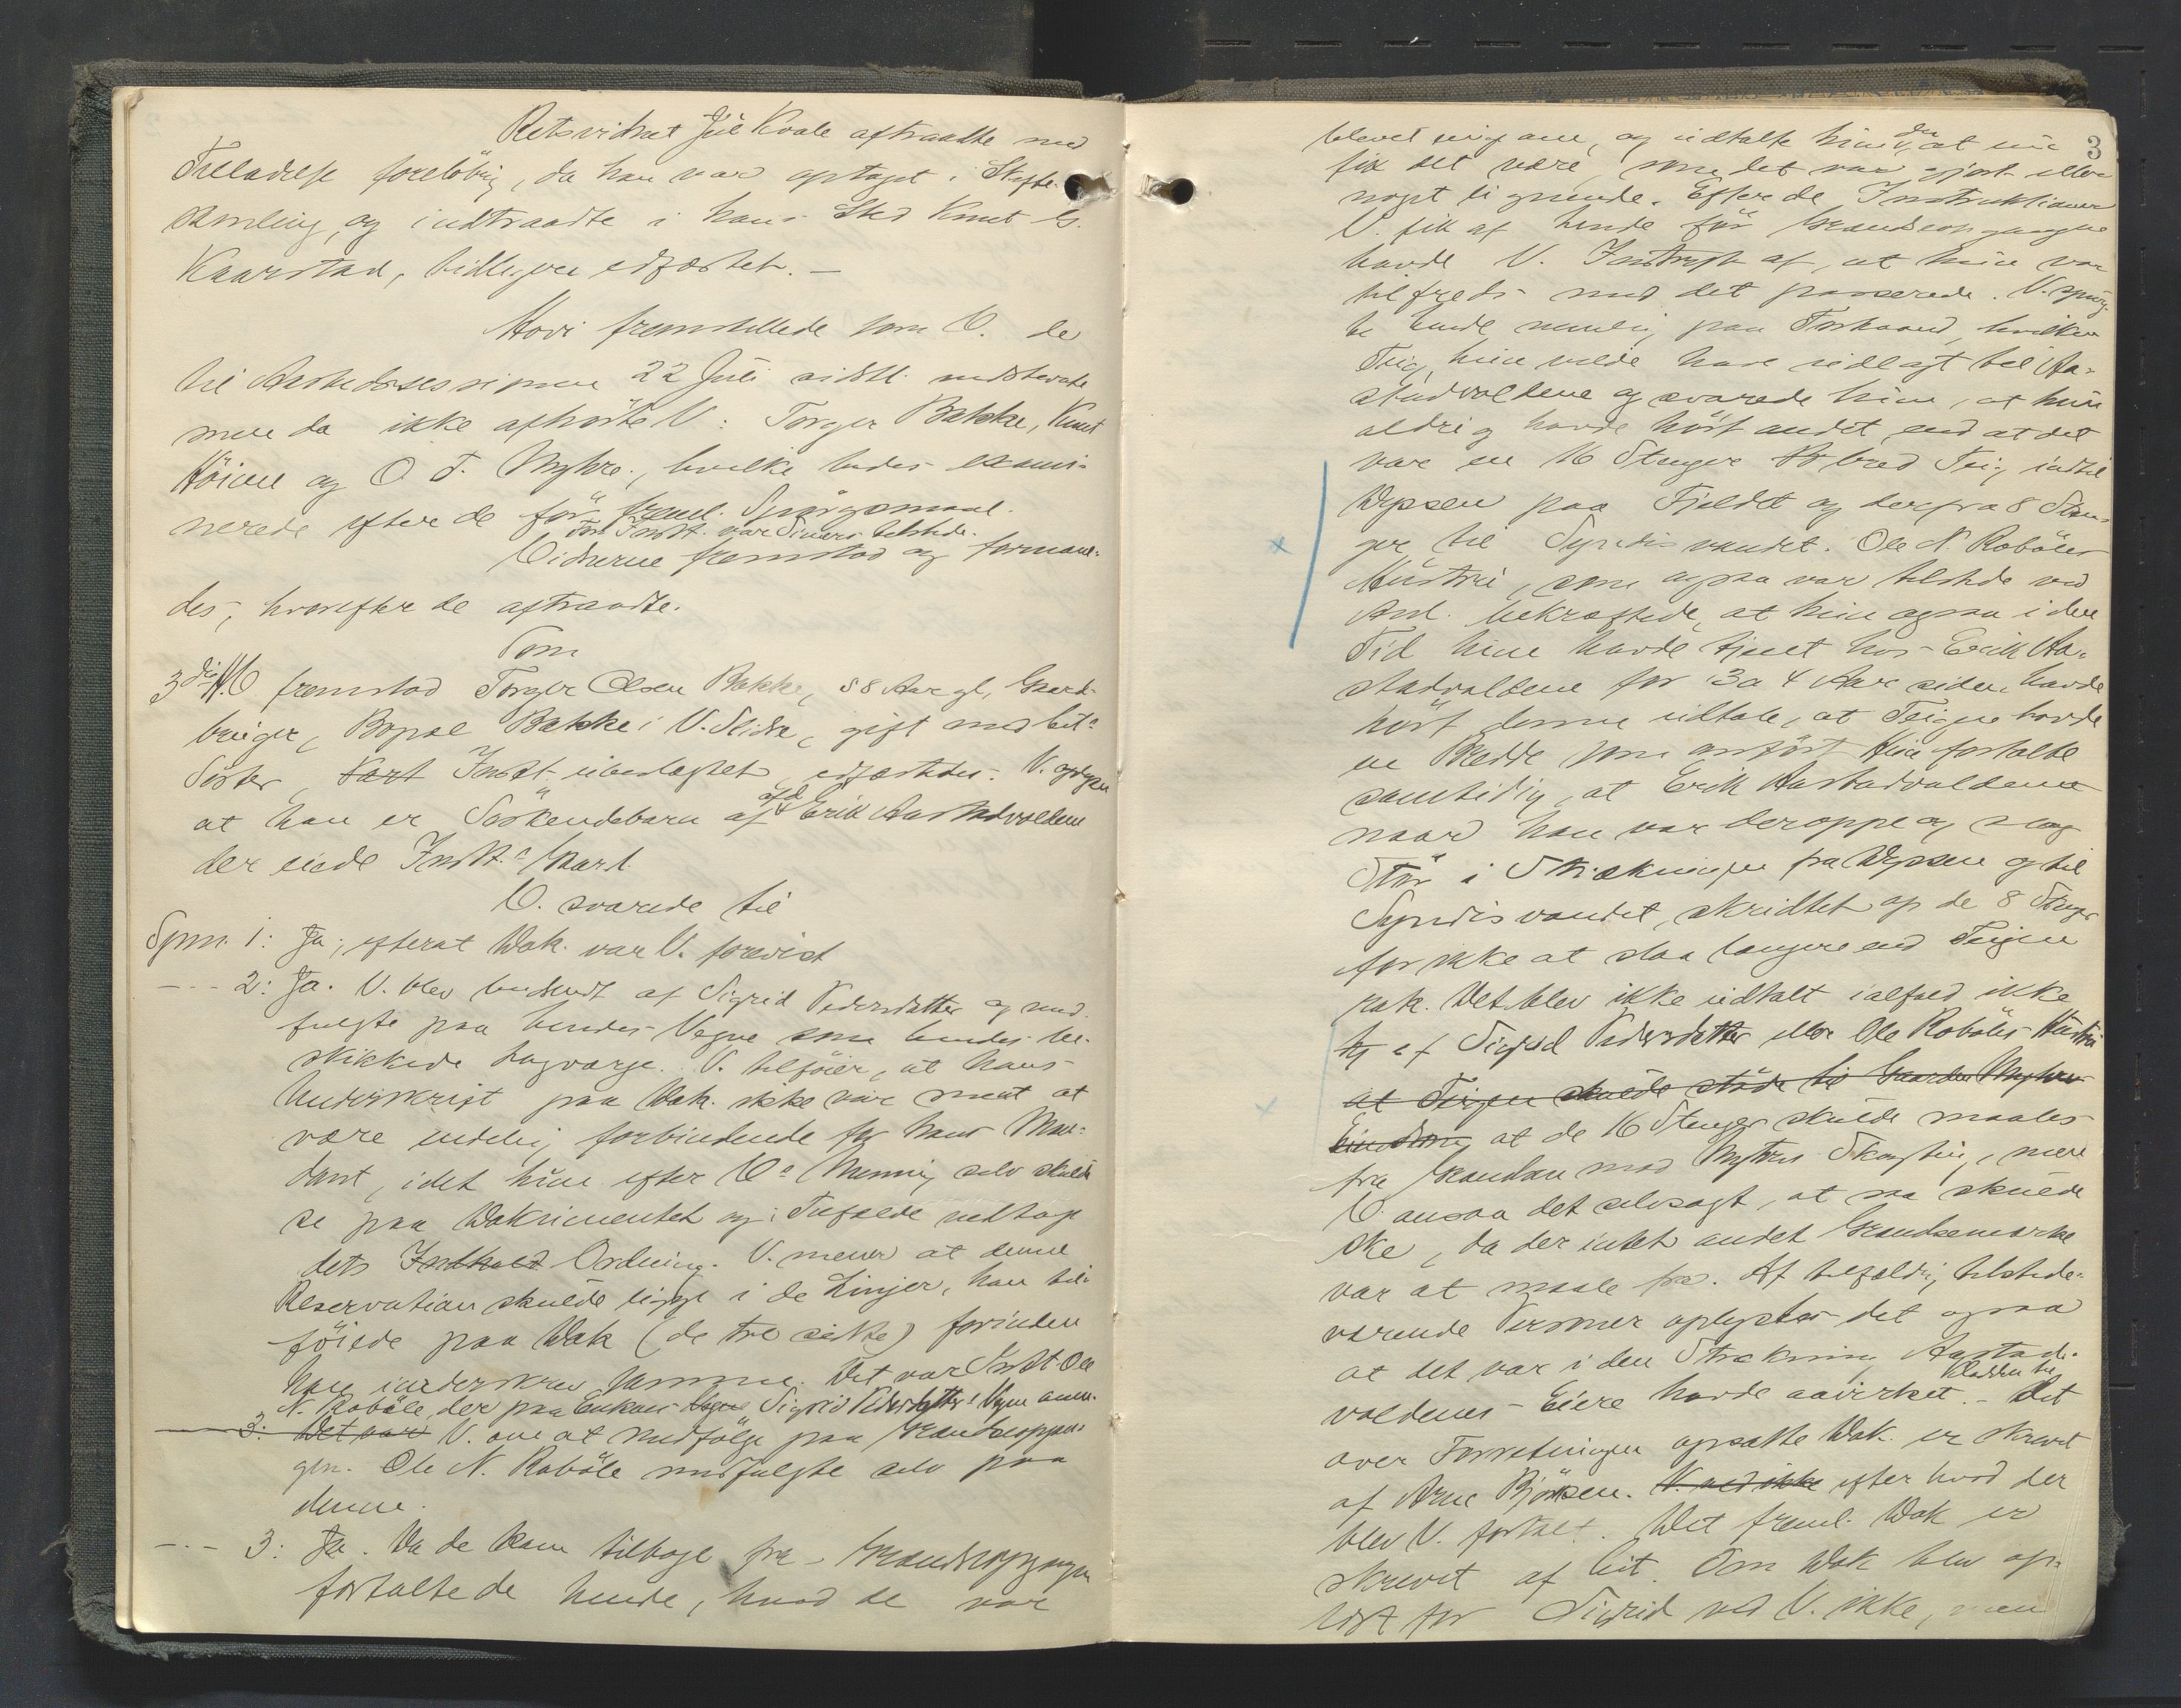 Retsvidnet Jul Kvale aftraadte med
Tilladelse foreløbig, da han var optaget i Skifte-
samling, og indtraadte i hans Sted Knut G.
Kaarstad, tidligere edfæstet. —
Hovi fremstillede som V. de
til Aastedssessionen 22 Juli sidstl. indstevnte
men da ikke afhørte V: Torger Bakke, Knut
Høine og O T. Myhre, hvilke bedes exami-
nerede efter de før freml. Spørgsmaal.
For Indst. var Sivers tilstede.
Vidnerne fremstod og forman-
des, hvorefter de aftraadte.
Som
3die V fremstod Torger Olsen Bakke, 58 Aar gl, Gaard-
bruger, Bopæl Bakke i V. Slidre, gift med Cit.s
Søster, Indst. ubeslægtet, edfæstedes. V. oplyser
at han er Søskendebarn af afd. Erik Aastadvolden
der eiede Indst.s Part.
V. svarede til
Spm. 1: Ja; efterat Dok. var V. forevist
—.— 2: Ja. V. blev budsendt af Sigrid Pedersdatter og med-
fulgte paa hendes Vegne som hendes be-
skikkede Lagværge. V. tilføier, at hans
Underskrift paa Dok. ikke var ment at
være endelig forbindende for hans Man-
dant, idet hun efter V.s Mening selv skulde
se paa Dokumentet og i Tilfælde vedtage
dets Indhold Ordning. V. mener at denne
Reservation skulde ligge i de Linjer, han til-
føiede paa Dok (de tre sidste) forinden
han underskrev samme. Det var Indst. Ole
N. Robøle, der paa Enkens Sigrid Pedersdatters Vegne anm.
3: Det var V. om at medfølge paa Grændseopgan-
gen. Ole N. Robøle medfulgte selv paa
denne.
—.— 3: Ja. Da de kom tilbage fra Grændseopgangen
fortalte de hende, hvad de var
3
blevet enig om, og udtalte hun da, at nu
fik det være, som det var gjort eller
noget lignende. Efter de Instruktioner
V. fik af hende før Grændseopgangen
havde V. Indtryk af, at hun var
tilfreds med det passerede. V. spurg-
te hende nemlig paa Forhaand, hvilken
Teig, hun vilde have udlagt til Aa-
stadvoldene og svarede hun, at hun
aldrig havde hørt andet, end at det
var en 16 Stenger bred Teig indtil
Dypsen paa Fjeldet og derfra 8 Stæn-
ger til Syndisvandet. Ole N. Robøles
Hustru, som ogsaa var tilstede ved
Anl. bekræftede, at hun ogsaa i den
Tid hun havde tjent hos Erik Aa-
stadvoldene for 3 a 4 Aar siden havde
hørt denne udtale, at Teigen havde
en Bredde som anført. Hun fortalte
samtidig, at Erik Aastadvoldene
naar han var deroppe og slog
Stør i Strækningen fra Dypsen og til
Syndisvandet, skridtet op de 8 Stenger
for ikke at slaa længere end Teigen
rak. Det blev ikke udtalt ialfald ikke
af Sigrid Pedersdatter eller Ole Robøles Hustru
at Teigen skulde støde til Gaarden Myhres
Eiendom, at de 16 Stenger skulde maales
fra Grændsen mod Myhres Skogteig, men
V. ansaa det selvsagt, at saa skulde
ske, da der intet andet Grændsemærke
var at maale fra. Af tilfældig tilstede-
værende Personer oplystes det ogsaa
at det var i den Strækning Aastad-
voldenes Eiere havde aavirket. — Kladden til Det
over Forretningen opsatte Dok. er skrevet
af Arne Bjørsen. V. ved ikke efter hvad der
blev V. fortalt. Det freml. Dok er
skrevet af Cit. Om Dok blev op-
læst for Sigrid ved V. ikke, men